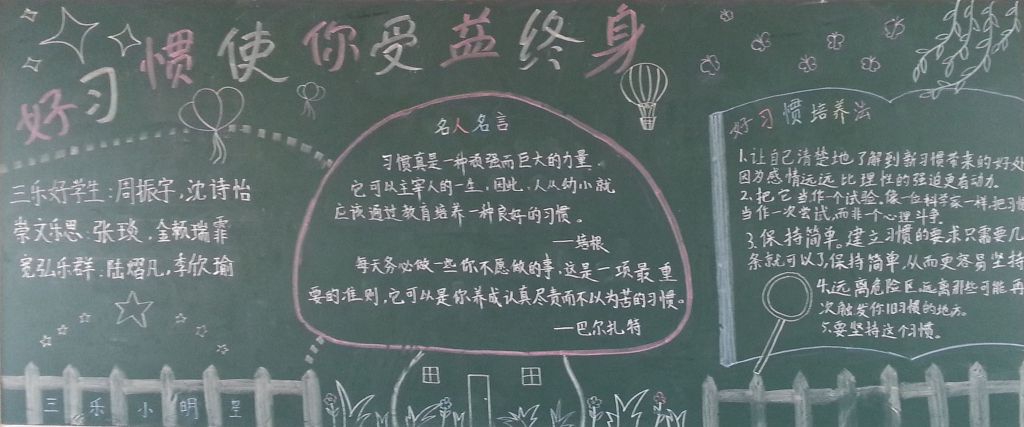 好习惯使你受益终身
三乐好学生:周振宇,沈诗怡
崇文乐思:张琰,金颖瑞霏
宽弘乐群:陆熠凡,李欣瑜
三乐小明星
名人名言
习惯真是一种顽强而巨大的力量。
它可以主宰人的一生,因此,人从幼小就
应该通过教育培养一种良好的习惯。
——培根
每天务必做一些你不愿做的事,这是一项最重
要的准则,它可以是你养成认真尽责而不以为苦的习惯。
——巴尔扎特
好习惯培养法
1.让自己清楚地了解到新习惯带来的好处
因为感情远远比理性的强迫更有动力。
2.把它当作个试验。像一位科学家一样,把习惯
当作一次尝试,而非一个心理斗争。
3.保持简单。建立习惯的要求只需要几
条就可以了,保持简单,从而更容易坚持
4.远离危险区,远离那些可能再
次触发你旧习惯的地方。
5.要坚持这个习惯。